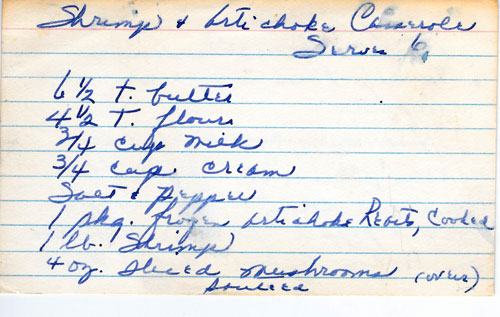 Shrimp & Artichoke Casserole
Serves 6
6 1/2 T. butter
4 1/2 T. flour
3/4 cup milk
3/4 cup cream
Salt & pepper
1 pkg. frozen artichoke Hearts, Cooked
1 lb. Shrimp
4 oz. sliced mushrooms (over)
sauteed